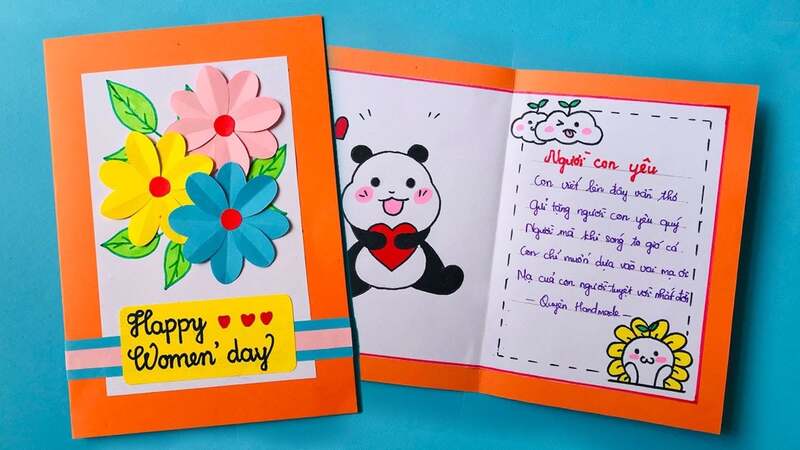 Happy
Women' day
Người con yêu
Con viết lên đây vần thơ
Gửi tặng người con yêu quý
Người mà khi sóng to gió cả
Con chỉ muốn dựa vào vai mạ ơi
Mạ của con người tuyệt vời nhất đời
— Quyên Handmade —